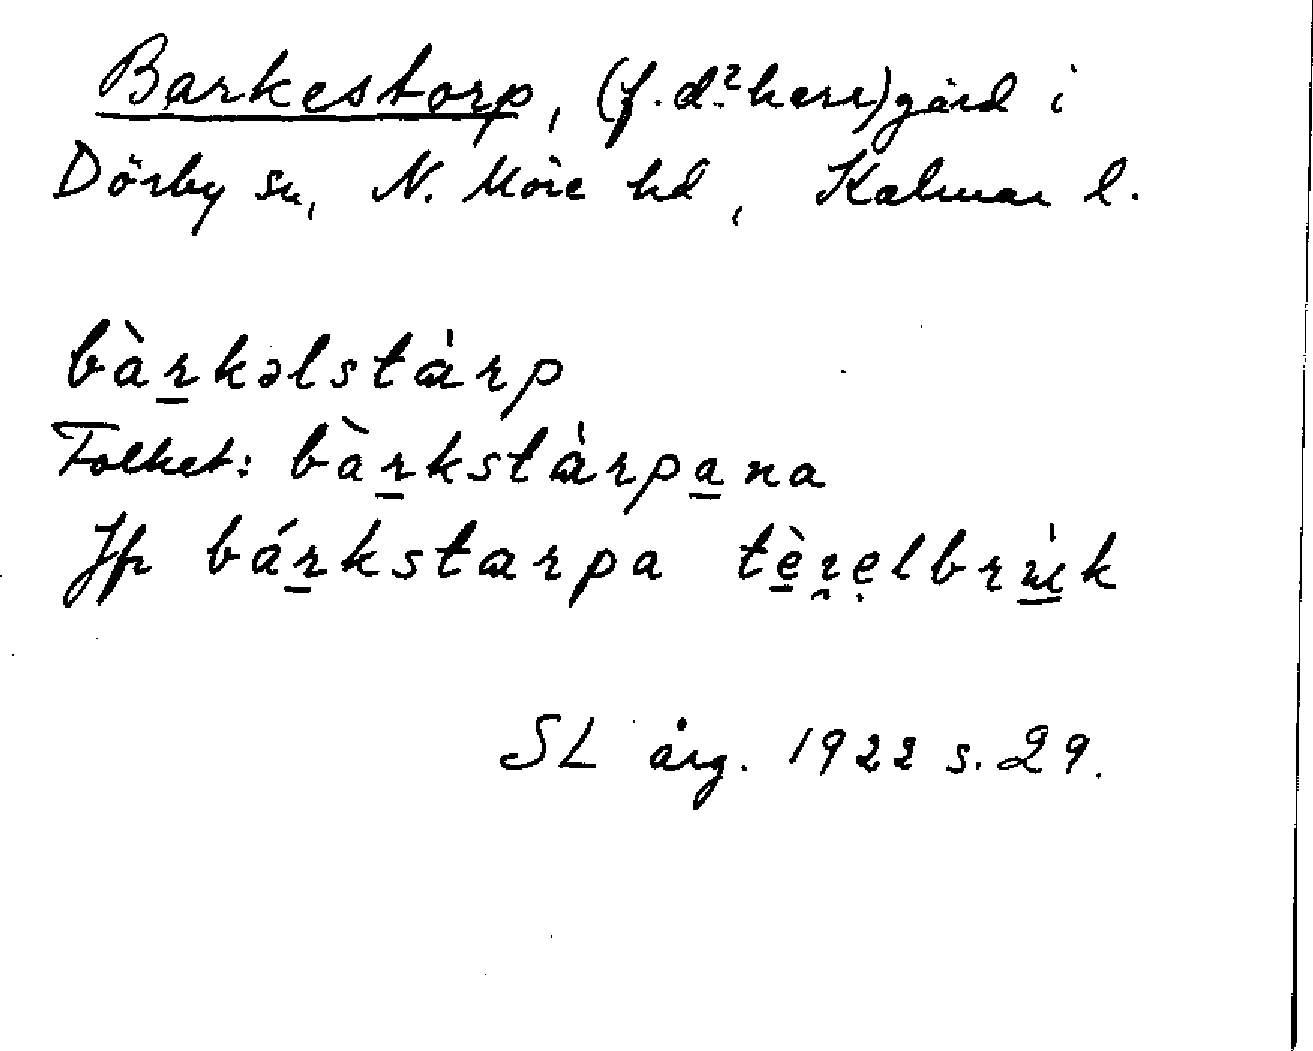 Barkestorp, (f.d.? herr)gård i
Dörby sn, N. Möre hd, Kalmar l.
bàrkəlstàrp
Folket: bàrkstàrpana
Jfr bárkstarpa tèrelbruk
SL årg. 1922 s. 29.